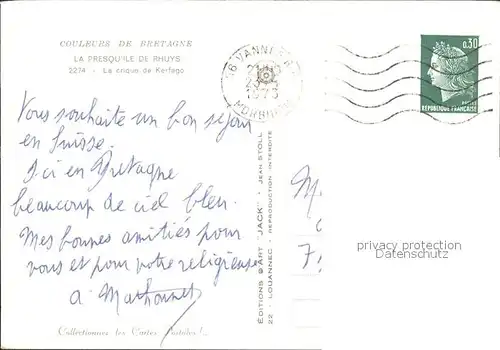 COULEURS DE BRETAGNE
LA PRESQU'ILE DE RHUYS
2274 - La crique de Kerfago
56 VANNES
MORBIHAN
0,30
RÉPUBLIQUE FRANÇAISE
Vous souhaite un bon séjour
en Suisse.
Ici en Bretagne
beaucoup de ciel bleu.
Mes bonnes amitiés pour
vous et pour votre religieuse
a
EDITIONS D'ART "JACK" - JEAN STOLL
22 - LOUANNEC - REPRODUCTION INTERDITE
privacy protection
Datenschutz
Collectionnez les Cartes Postales !..